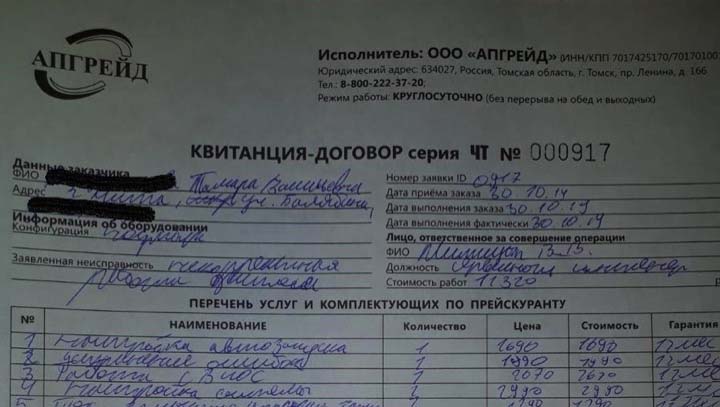 АПГРЕЙД
Исполнитель: ООО «АПГРЕЙД» (ИНН/КПП 7017425170/70170100
Юридический адрес: 634027, Россия, Томская область, г. Томск, пр. Ленина, д. 166
Тел.: 8-800-222-37-20;
Режим работы: КРУГЛОСУТОЧНО (без перерыва на обед и выходных)
КВИТАНЦИЯ-ДОГОВОР серия ЧТ № 000917
Данные заказчика
ФИО Тамара
Адрес г. Чита, ул.
Информация об оборудовании
Конфигурация
Заявленная неисправность некорректная
работа
Номер заявки ID 0917
Дата приёма заказа 30 10.19
Дата выполнения заказа 30 10.19
Дата выполнения фактически 30 10 19
Лицо, ответственное за совершение операции
ФИО
Должность инженер
Стоимость работ 11320
ПЕРЕЧЕНЬ УСЛУГ И КОМПЛЕКТУЮЩИХ ПО ПРЕЙСКУРАНТУ
№ НАИМЕНОВАНИЕ Количество Цена Стоимость Гарантия
1 Настройка автозапуска 1 1690 1690 12 мес
2 устранение ошибок 1 1990 1990 12 мес
3 Работа с БИОС 1 2670 2670 12 мес
4 Настройка системы 1 2990 2990 12 мес
5